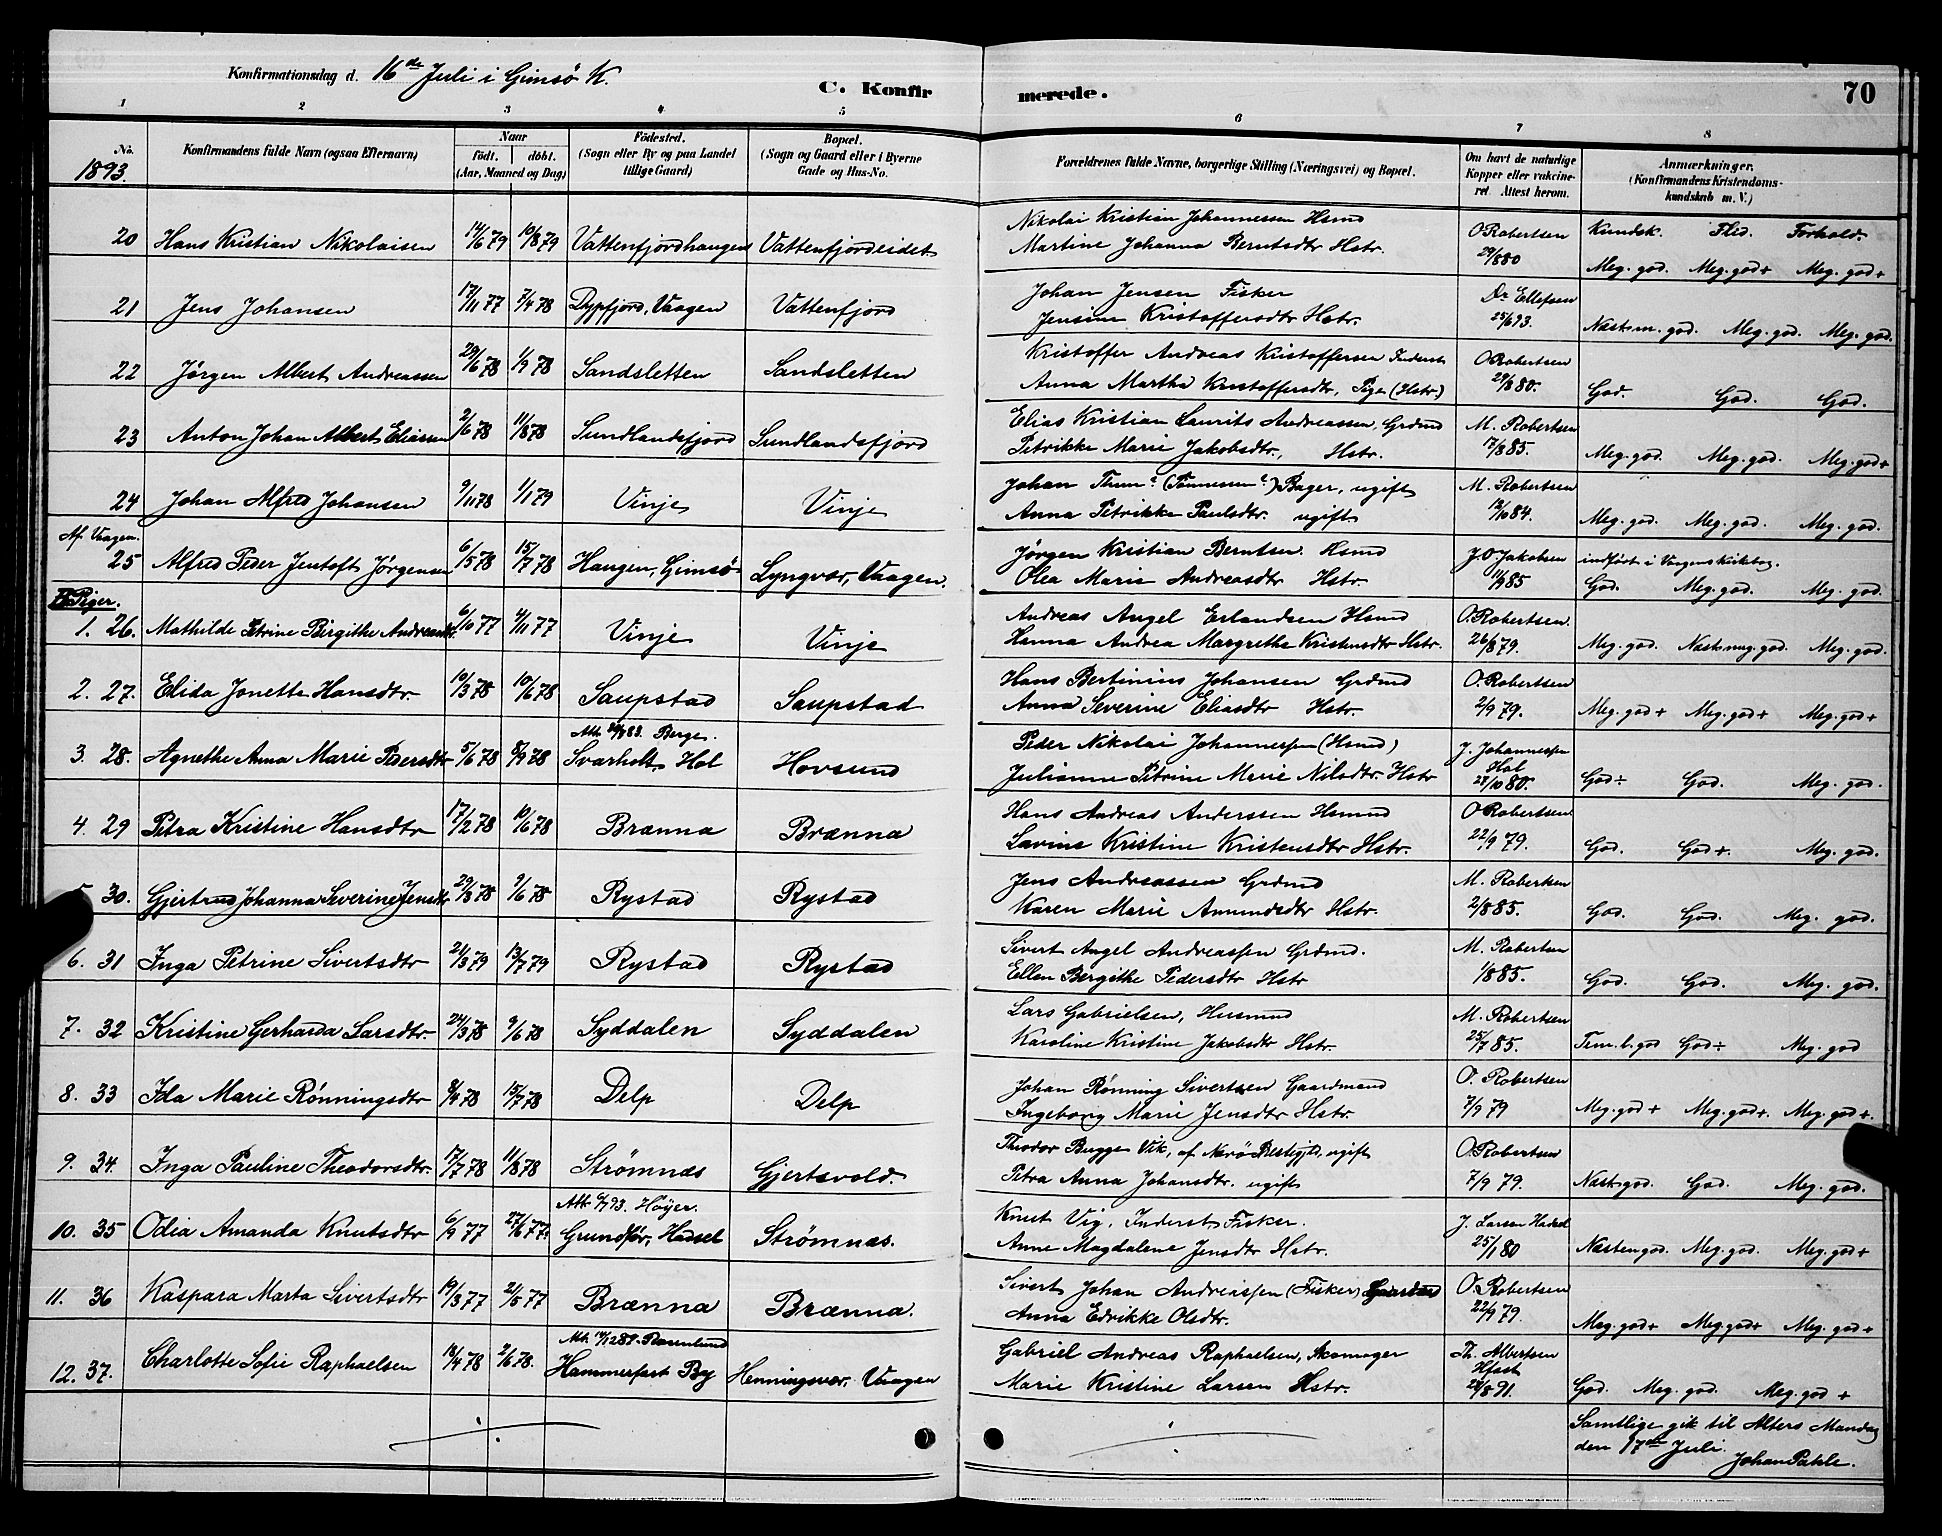 Konfirmationsdag d. 16de Juli i Gimsö K.
C. Konfirmerede. 70
1 2 3 4 5 6 7 8
No. 1893.
Konfirmandens fulde Navn (ogsaa Efternavn)
Naar födt. döbt. (Aar, Maaned og Dag)
Födested. (Sogn eller By og paa Landet tillige Gaard)
Bopæl. (Sogn og Gaard eller i Byerne Gade og Hus-No.
Forældrenes fulde Navne, borgerlige Stilling (Næringsvei) og Bopæl.
Om havt de naturlige Kopper eller vakcineret. Attest herom.
Anmærkninger. (Konfirmandens Kristendomskundskab m. V.)
Kundsk. Flid. Forhold.
20 Hans Kristian Nikolaisen 14/6 79 10/8 79 Vattenfjordhaugen Vattenfjordeidet Nikolai Kristian Johannessen Hsmd O Robertsen
Martine Johanna Berntsdtr Hstr. 29/8 80 Meg. god. Meg. god + Meg. god +
21 Jens Johansen 17/11 77 7/4 78 Dypfjord, Vaagen Vattenfjord Johan Jensen Fisker Dr Ellefsen
Jensine Kristoffersdtr Hstr. 25/6 93. Næst m. god. Meg. god. Meg. god.
22 Jörgen Albert Andreassen 29/6 78 1/9 78 Sandsletten Sandsletten Kristoffer Andreas Kristoffersen Inderst O Robertsen
Anna Martha Kristoffersdtr, Pige (Hstr.) 29/8 80. God. God. God.
23 Anton Johan Albert Eliassen 2/6 78 11/8 78 Sundlandsfjord Sundlandsfjord Elias Kristian Laurits Andreassen, Grdmd M. Robertsen
Petrikke Marie Jakobsdtr, Hstr. 17/8 85. Meg. god. Meg. god. Meg. god +
24 Johan Alfred Johansen 9/11 78 1/1 79 Vinje Vinje Johan (Tönnesen?) Bager, ugift M. Robertsen
Anna Petrikke Paulsdtr. ugift 12/10 84. Meg. god. Meg. god. Meg. god.
Af Vaagen.
25 Alfred Peder Jentoft Jörgensen 6/5 78 15/7 78 Haugen, Gimsö Lyngvær, Vaagen. Jörgen Kristian Berntsen Hsmd J. O. Jakobsen indfört i Vaagens kirkebog.
Olea Marie Andreasdtr Hstr. 11/9 85 God. Meg. god. Meg. god.
Piger.
1. 26. Mathilde Petrine Birgithe Andreasdtr. 6/10 77 4/11 77 Vinje Vinje Andreas Angel Erlandsen Hsmd O. Robertsen
Hanna Andrea Margrethe Kristensdtr Hstr. 26/8 79. Meg. god. Næst meg. god. Meg. god.
2. 27. Elida Jonette Hansdtr. 10/3 78 10/6 78 Saupstad Saupstad Hans Bertinius Johansen Grdmd O. Robertsen
Anna Severine Eliasdtr Hstr. 2/9 79. Meg. god + Meg. god + Meg. god +
3. 28. Agnethe Anna Marie Pedersdtr 5/6 78 8/9 78 Att. 83. Berge. Svarholt, Hol Hovsund Peder Nikolai Johannessen (Hsmd) J. Johannessen Hol
Julianne Petrine Marie Nilsdtr. Hstr 28/10 80. God ÷ God. Meg. god.
4. 29 Petra Kristine Hansdtr 17/2 78 10/6 78 Brænna Brænna Hans Andreas Anderssen Hsmd O Robertsen
Lavine Kristine Kristensdtr Hstr. 22/9 79. God. God +. Meg. god.
5. 30. Gjertrud Johanna Severine Jensdtr 29/3 78 9/6 78 Rystad Rystad Jens Andreassen Grdmd M. Robertsen
Karen Marie Amundsdtr Hstr. 2/8 85. God. God. Meg. god.
6. 31 Inga Petrine Sivertsdtr 21/3 79 13/7 79 Rystad Rystad Sivert Angel Andreassen Grdmd. M. Robertsen
Ellen Bergithe Pedersdtr Hstr 1/8 85. God. God. Meg. god.
7. 32 Kristine Gerharda Larsdtr. 24/3 78 9/6 78 Syddalen Syddalen Lars Gabrielsen, Husmd M. Robertsen
Karoline Kristine Jakobsdtr Hstr. 25/7 85. Tem. b. god God ÷ Meg. god
8. 33 Ida Marie Rönningsdtr 8/4 78 15/7 78 Delp Delp Johan Rönning Sivertsen Gaardmand O. Robertsen
Ingeborg Marie Jensdtr Hstr. 7/9 79 Meg. god + Meg. god +. Meg. god +.
9. 34. Inga Pauline Theodorsdtr. 17/7 78 11/8 78 Strömnæs Gjertsvold. Theodor Bugge Vik, af Nærö Prestegjld, ugift O Robertsen
Petra Anna Johansdtr. ugift 7/9 79. Næst. god. God. Meg. god.
10. 35 Odia Amanda Knutsdtr 6/9 77 27/6 77. Att. 6/7 93. Höyer. Grundför, Hadsel Strömnæs. Knut Vig, Inderst Fisker. J. Larsen Hadsel
Anne Magdalene Jensdtr Hstr. 25/1 80 Næsten god. Meg. god. Meg. god +
11. 36 Kaspara Marta Sivertsdtr 19/3 77 21/5 77 Brænna Brænna. Sivert Johan Andreassen (Fisker) O. Robertsen
Anna Edvikke Olsdtr. 22/9 79. Meg. god + Meg. god + Meg. god +
12. 37. Charlotte Sofie Raphaelsen 18/4 78 2/6 78. Hammerfest By Henningsvær, Vaagen Gabriel Andreas Raphaelsen, Skomager Th. Albertsen Hfest
Marie Kristine Larsen Hstr. 28/8 91. God. Meg. god. Meg. god +
Samtlige gik til Alters Mandag
den 17de Juli.
Johan